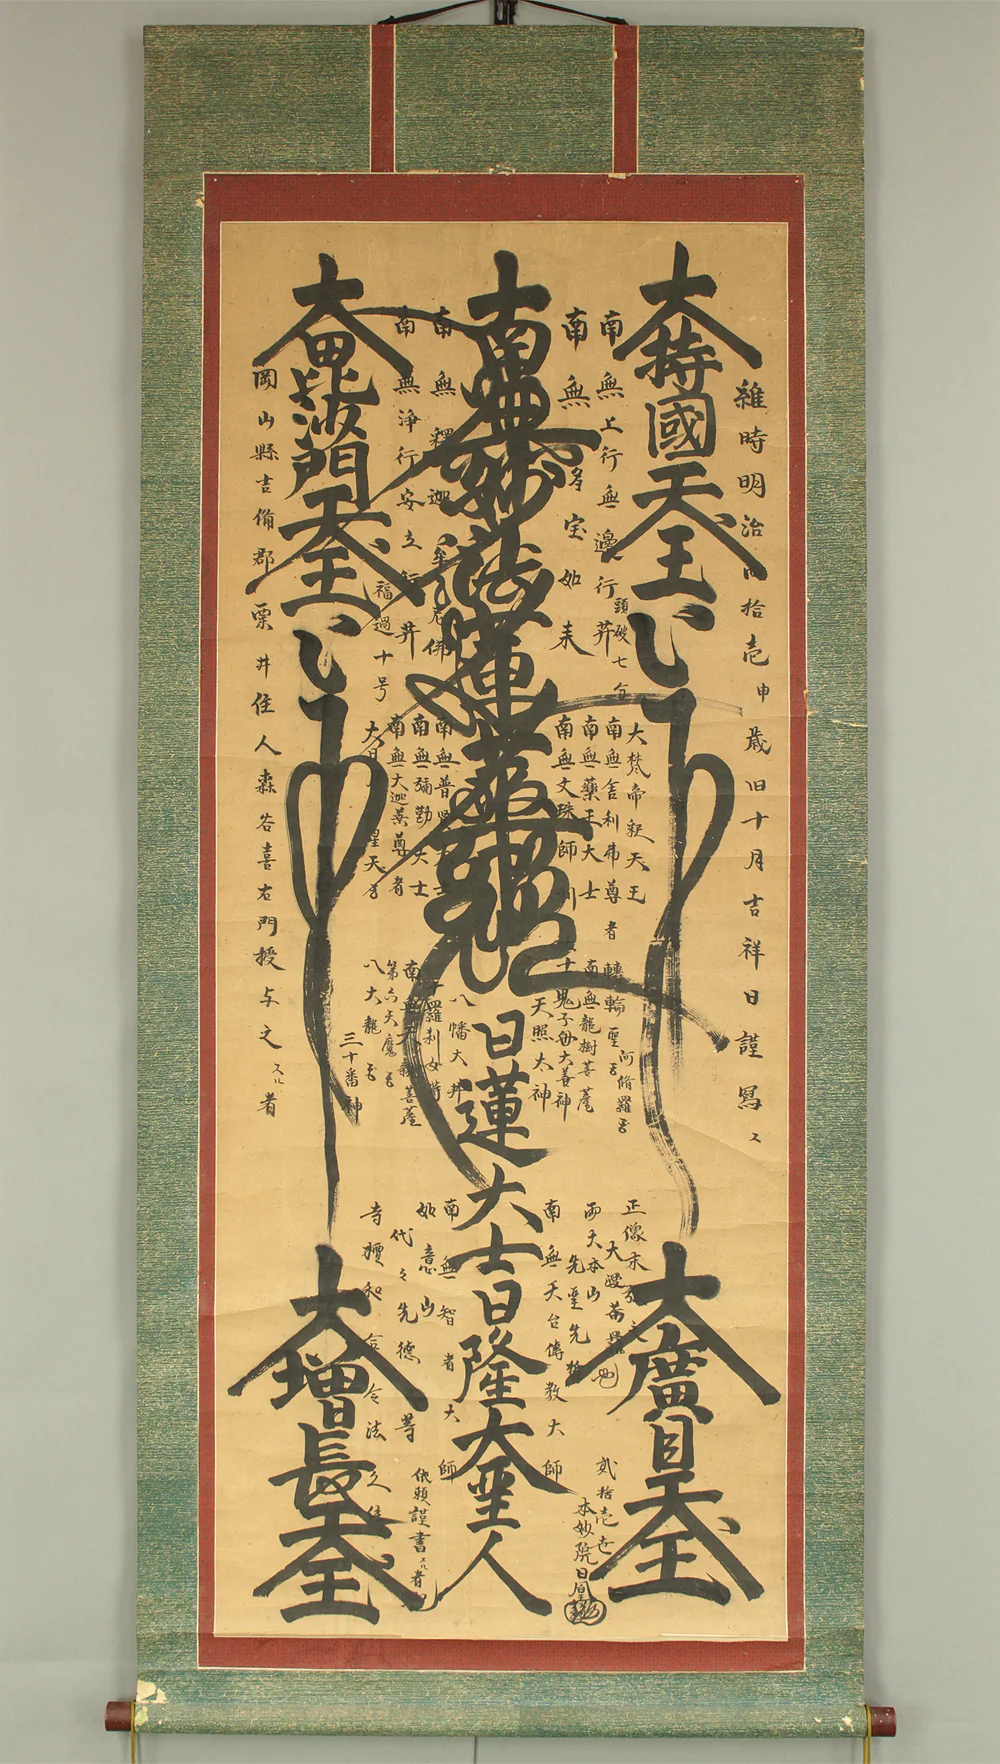 雖時明治四拾壱申歳旧十月吉祥日謹写之
大持國天王
大廣目天王
南無上行無邊行菩薩
南無多宝如来
頭破七分
大梵帝釈天王
南無舎利弗尊者
南無薬王大士
南無文珠師利
轉輪聖王
阿脩羅王
南無龍樹菩薩
鬼子母大善神
天照大神
正像末
両大本山
先聖先哲
南無天台傳教大師
弐拾壱世
本妙院日
南無妙法蓮華経
日蓮大士日隆大聖人
南無釋迦牟尼佛
南無浄行安立行菩薩
福過十号
南無普賢大士
南無彌勒大士
南無大迦葉尊者
大日 星天王
八幡大菩薩
十羅刹女等
南無天親菩薩
第六天魔王
八大龍王
三十番神
南無智者大師
如意山
代々先德等
寺檀和合
令法久住
依頼謹書スル者也
大毘沙門天王
大増長天王
岡山縣吉備郡栗井住人森谷喜右門授与之スル者